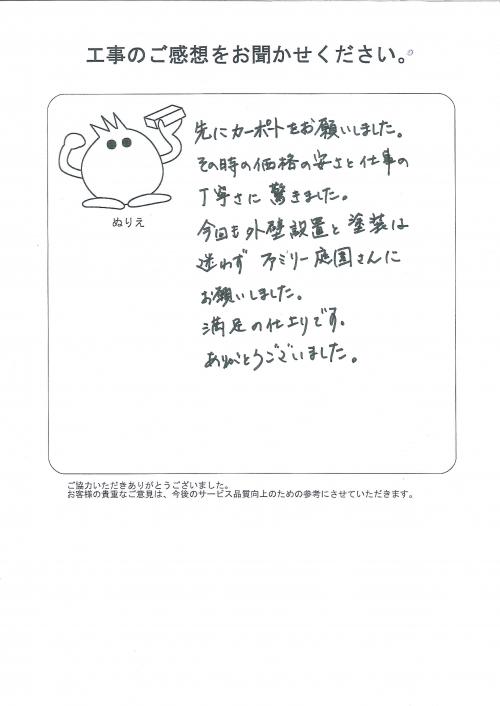 工事のご感想をお聞かせください。
先にカーポートをお願いしました。
その時の価格の安さと仕事の
丁寧さに驚きました。
今回も外壁設置と塗装は
迷わず ファミリー庭園さんに
お願いしました。
満足の仕上りです。
ありがとうございました。
ぬりえ
ご協力いただきありがとうございました。
お客様の貴重なご意見は、今後のサービス品質向上のための参考にさせていただきます。